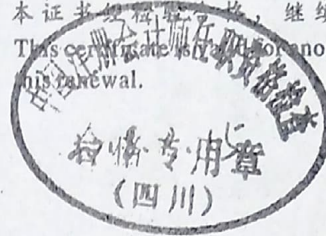 本证书经检验合格，继续
This certificate is valid for ano
this renewal.
中国注册会计师任职资格检查
专用章
（四川）